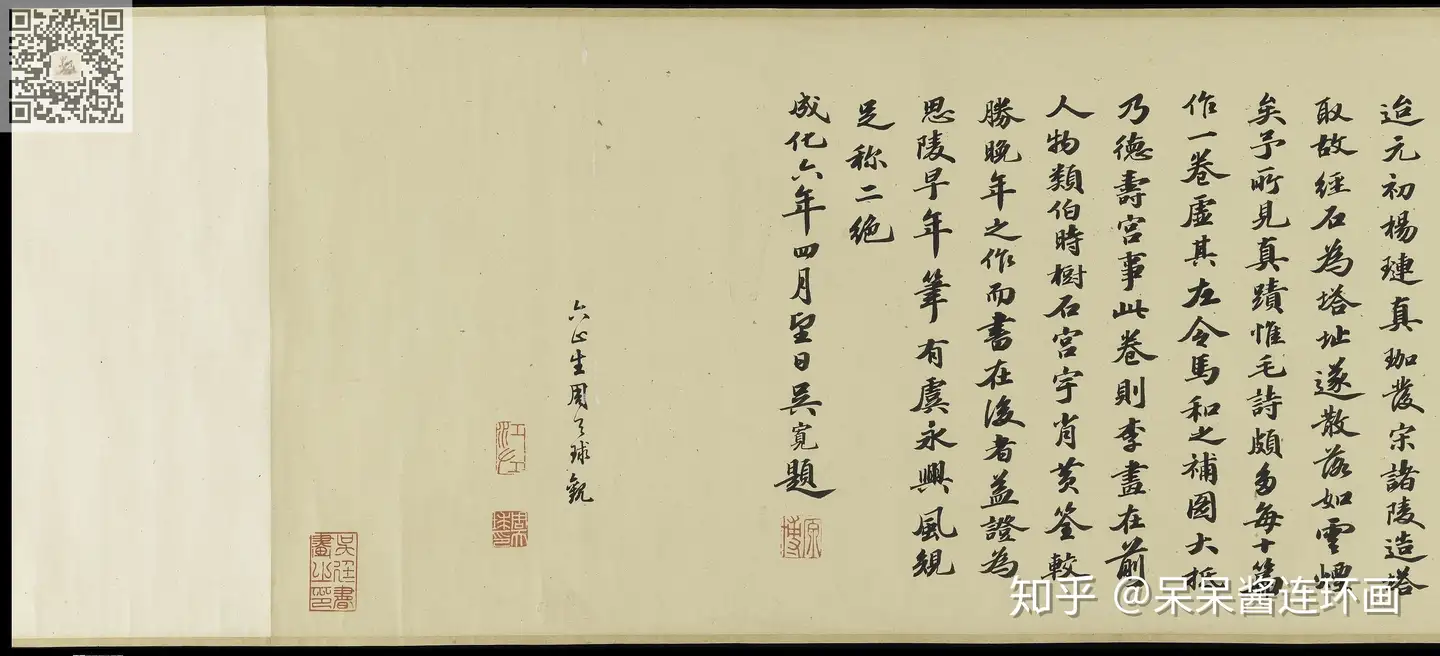 迨元初楊璉真珈發宋諸陵造塔
取故經石為塔址遂散落如雲煙
矣予所見真蹟惟毛詩頗多每十篇
作一卷虛其左令馬和之補圖大抵
乃德壽宮事此卷則李畫在前
人物類伯時樹石宮宇肖黃筌較
勝晚年之作而書在後者益證為
思陵早年筆有虞永興風規
足称二絶
成化六年四月望日吳寬題
原博
六止生周天球觀
周天球印
知乎 @呆呆酱连环画